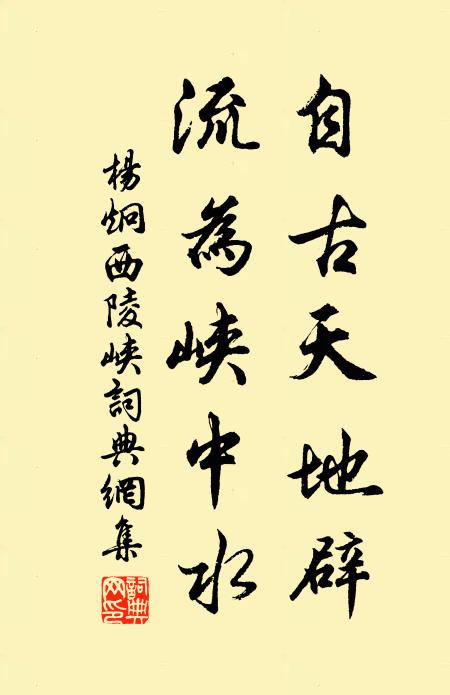 自古天地辟
流為峽中水
楊炯西陵峽詞典網集
詞典
网印